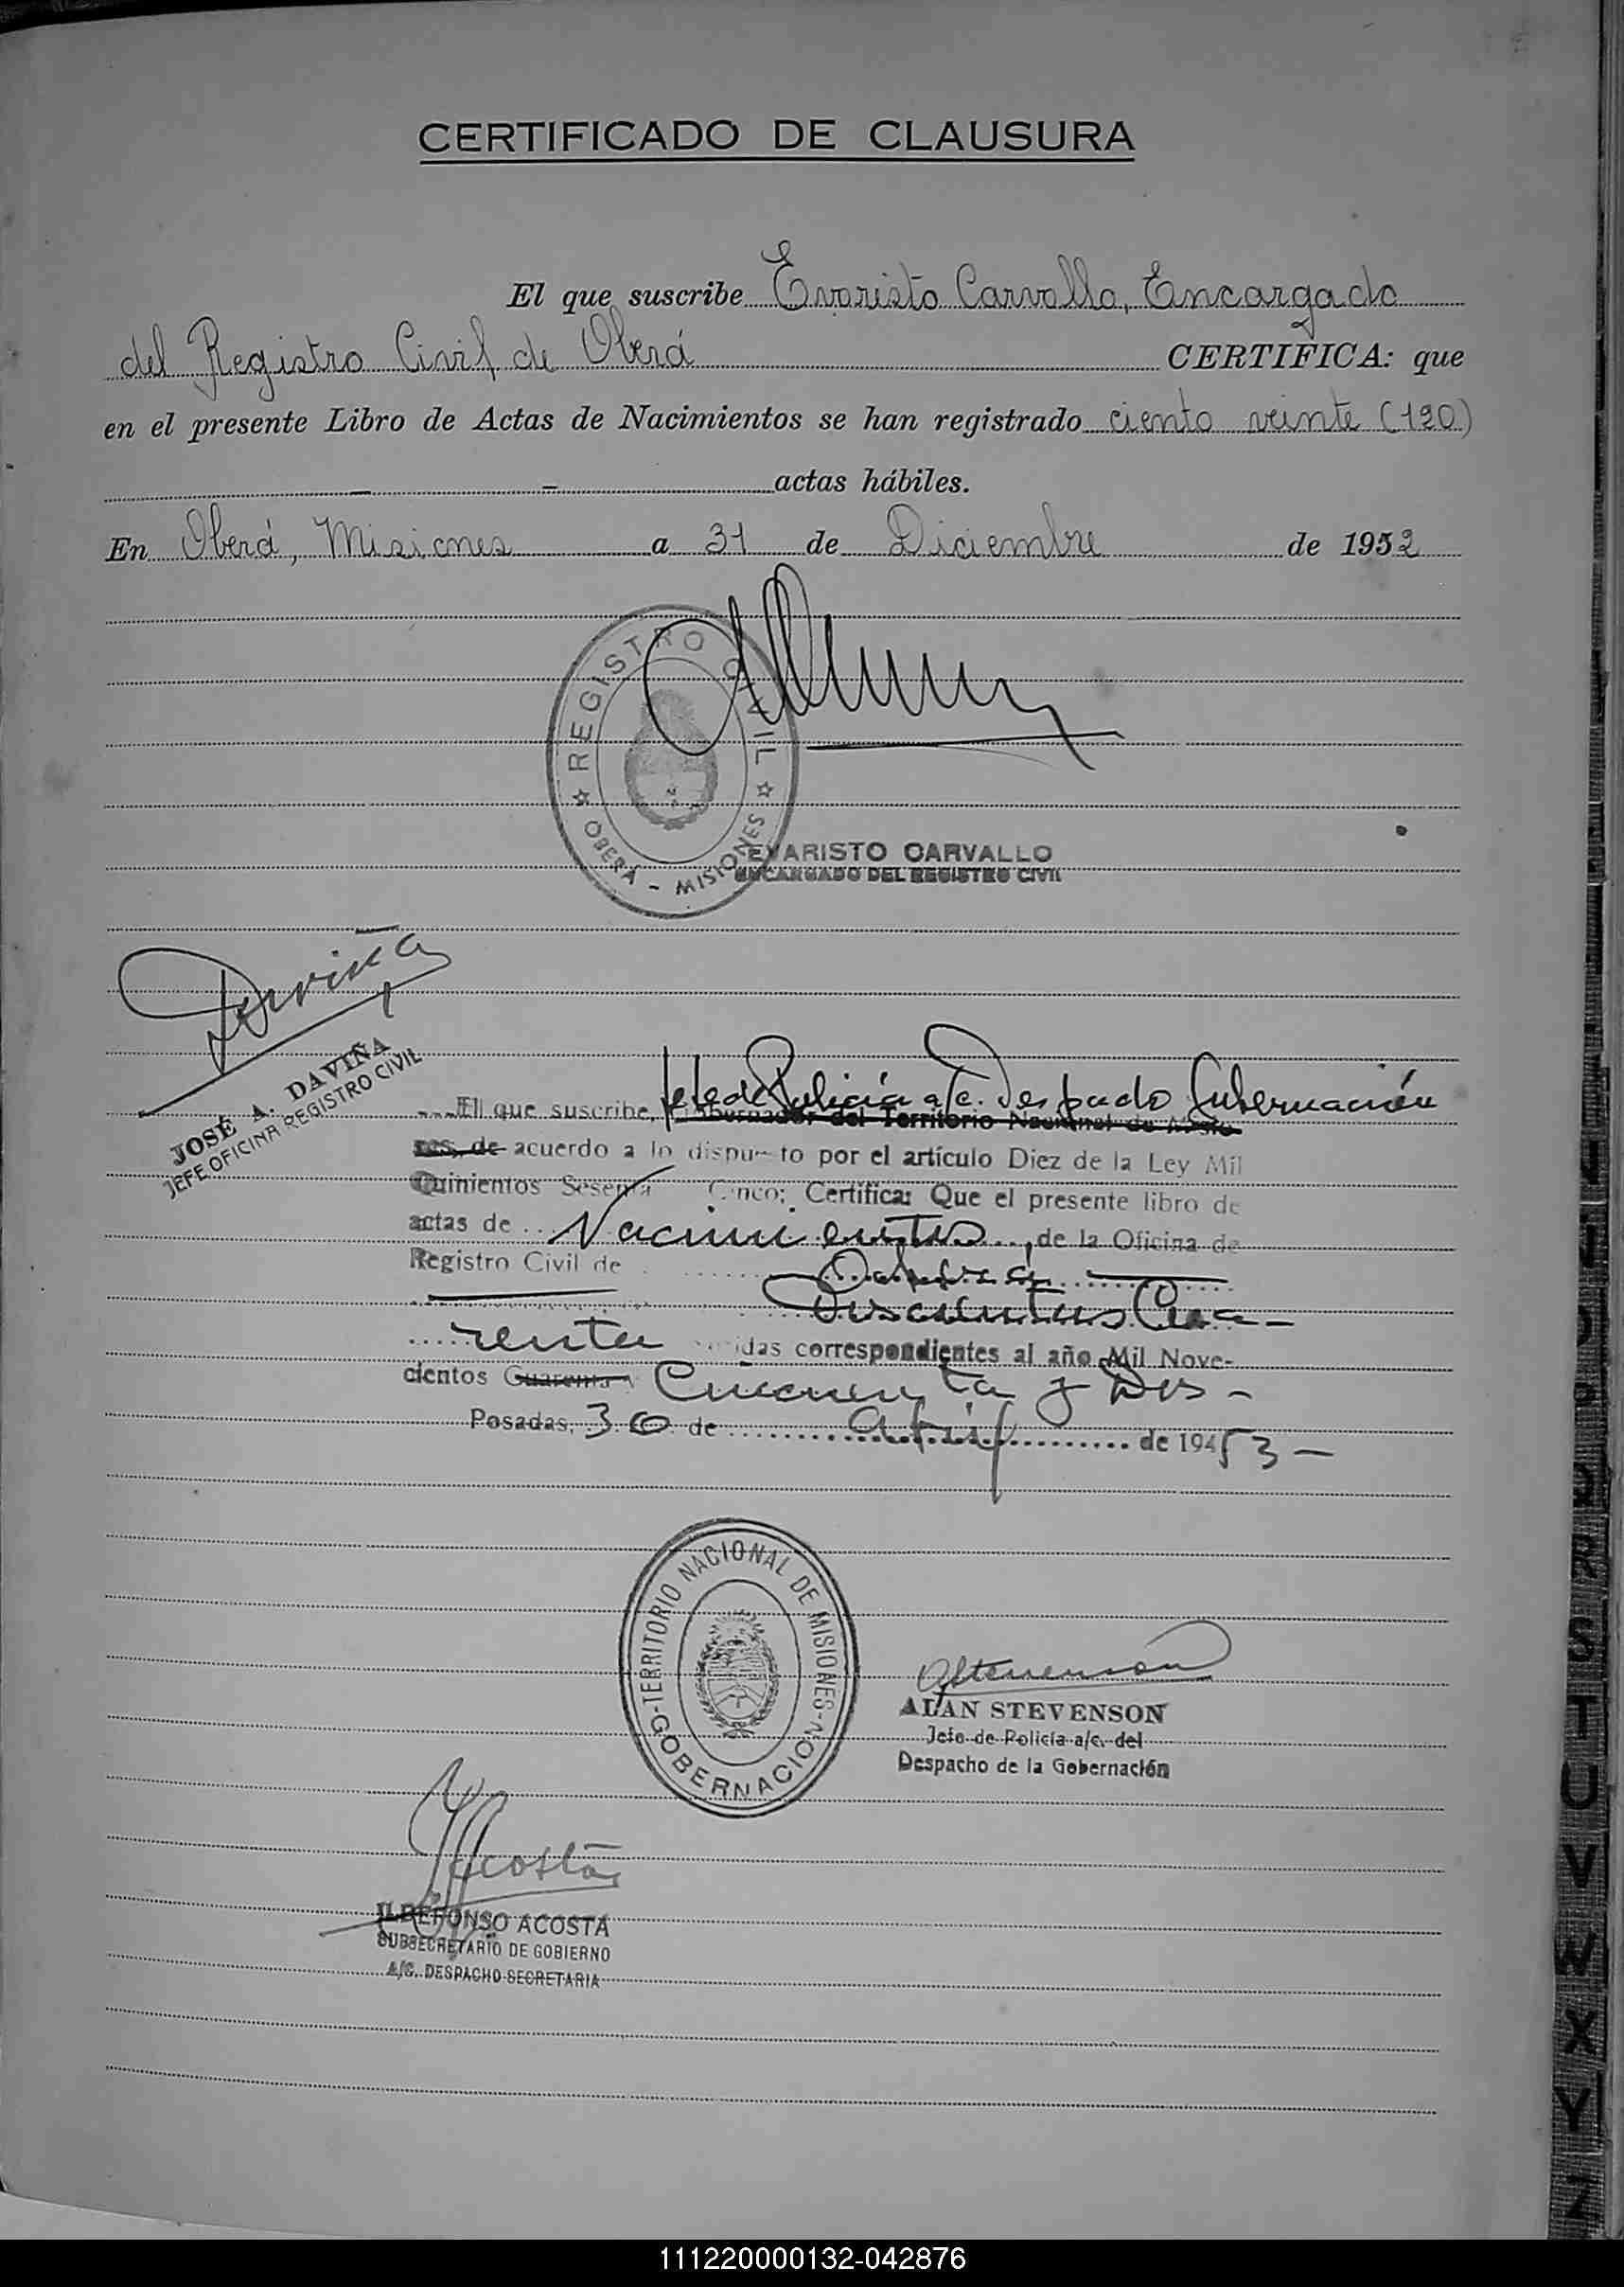 CERTIFICADO DE CLAUSURA
El que suscribe Evaristo Carvallo, Encargado
del Registro Civil de Oberá CERTIFICA: que
en el presente Libro de Actas de Nacimientos se han registrado ciento veinte (120)
— — actas hábiles.
En Oberá, Misiones a 31 de Diciembre de 1952
REGISTRO CIVIL
OBERÁ - MISIONES
EVARISTO CARVALLO
ENCARGADO DEL REGISTRO CIVIL
Daviña
JOSÉ A. DAVIÑA
JEFE OFICINA REGISTRO CIVIL
Jefe de Policía a/c. Despacho Gubernación
El que suscribe, Gobernador del Territorio Nacional de Misio-
nes, de acuerdo a lo dispuesto por el artículo Diez de la Ley Mil
Quinientos Sesenta Cinco; Certifica: Que el presente libro de
actas de Nacimientos, de la Oficina de
Registro Civil de Oberá
Doscientos Cua-
renta correspondientes al año Mil Nove-
cientos Cuarenta y Cincuenta y Dos -
Posadas, 30 de abril de 194 53 —
TERRITORIO NACIONAL DE MISIONES
GOBERNACION
AStevenson
ALAN STEVENSON
Jefe de Policía a/c. del
Despacho de la Gobernación
Acosta
ILDEFONSO ACOSTA
SUBSECRETARIO DE GOBIERNO
A/C. DESPACHO SECRETARIA
N
O
P
Q
R
S
T
U
V
W
X
Y
Z
111220000132-042876